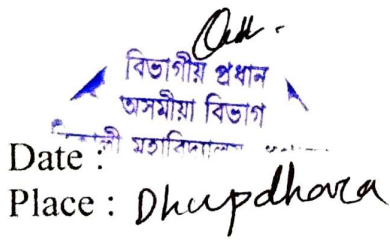 বিভাগীয় প্ৰধান
অসমীয়া বিভাগ
মহাবিদ্যালয়
Date :
Place : Dhupdhara